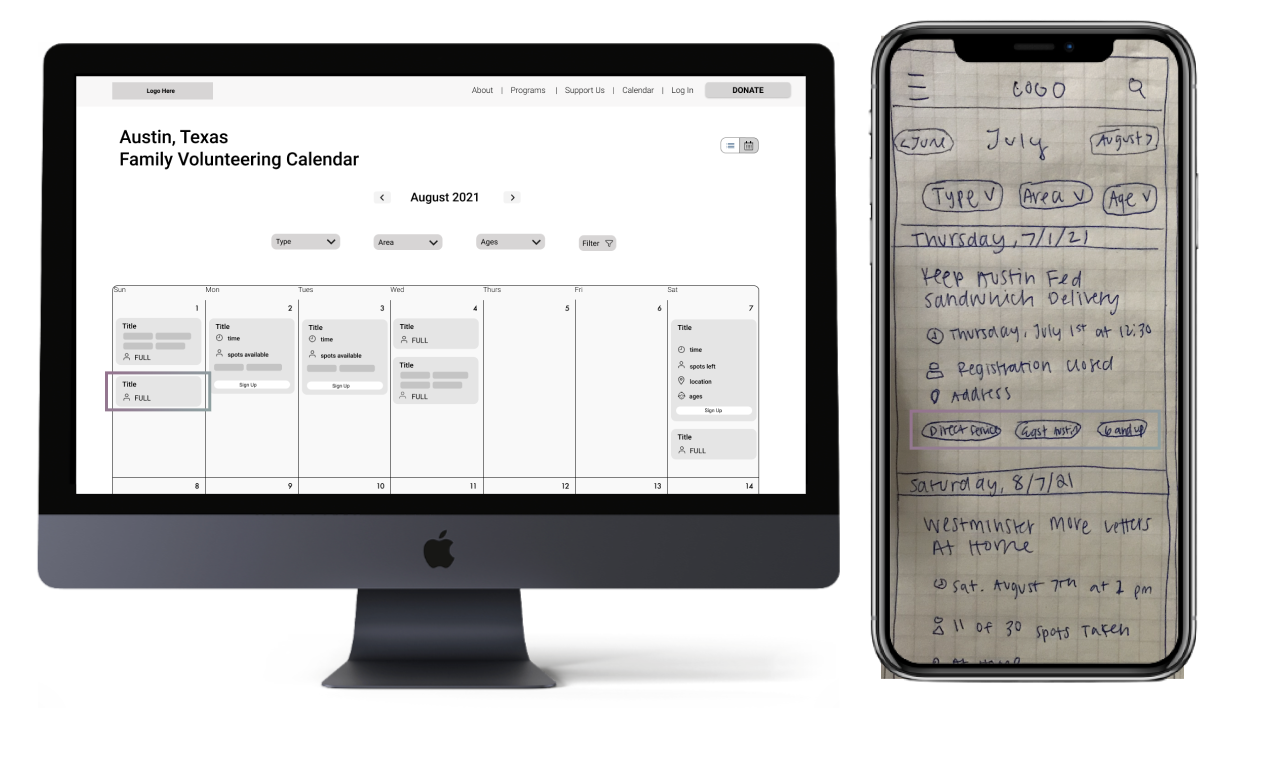 Logo Here
About | Programs | Support Us | Calendar | Log In DONATE
Austin, Texas
Family Volunteering Calendar
< August 2021 >
Type Area Ages Filter
Sun Mon Tues Wed Thurs Fri Sat
1 2 3 4 5 6 7
Title
FULL
Title
FULL
Title
time
spots available
Sign Up
Title
time
spots available
Sign Up
Title
FULL
Title
FULL
Title
time
spots left
location
ages
Sign Up
Title
FULL
8 9 10 11 12 13 14
LOGO
<June July August>
Type Area Age
Thursday, 7/1/21
Keep Austin Fed
Sandwhich Delivery
Thursday, July 1st at 12:30
Registration Closed
Address
Direct Service East Austin 6 and up
Saturday, 8/7/21
Westminster More Letters
At Home
Sat. August 7th at 2 pm
11 of 30 spots Taken
At Home